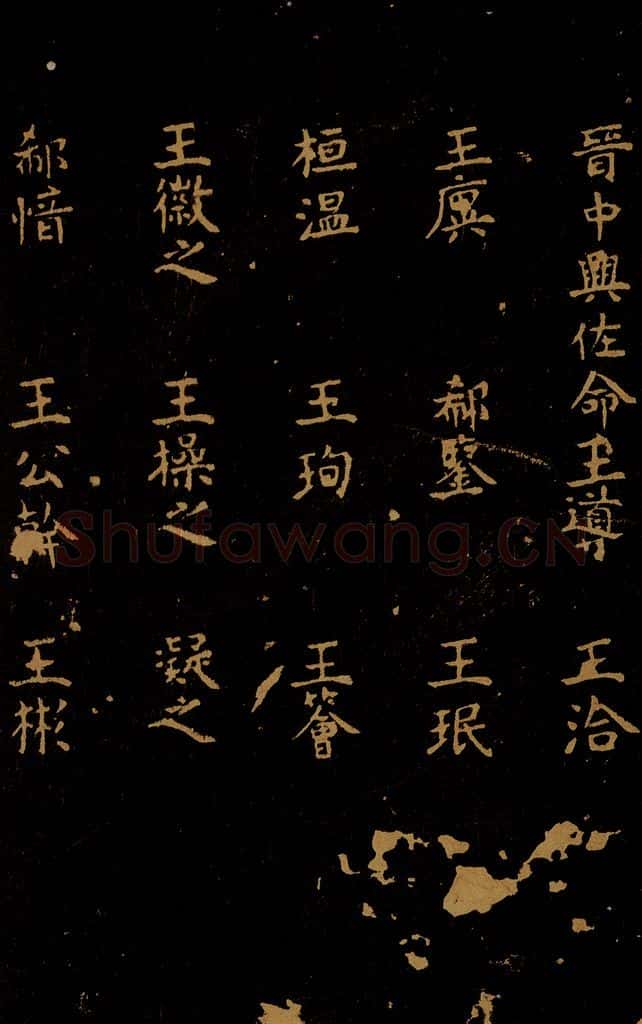 晉中興佐命王導 王洽
王廙 郗鑒 王珉
桓溫 王珣 王薈
王徽之 王操之 凝之
郗愔 王公幹 王彬
Shufawang.CN